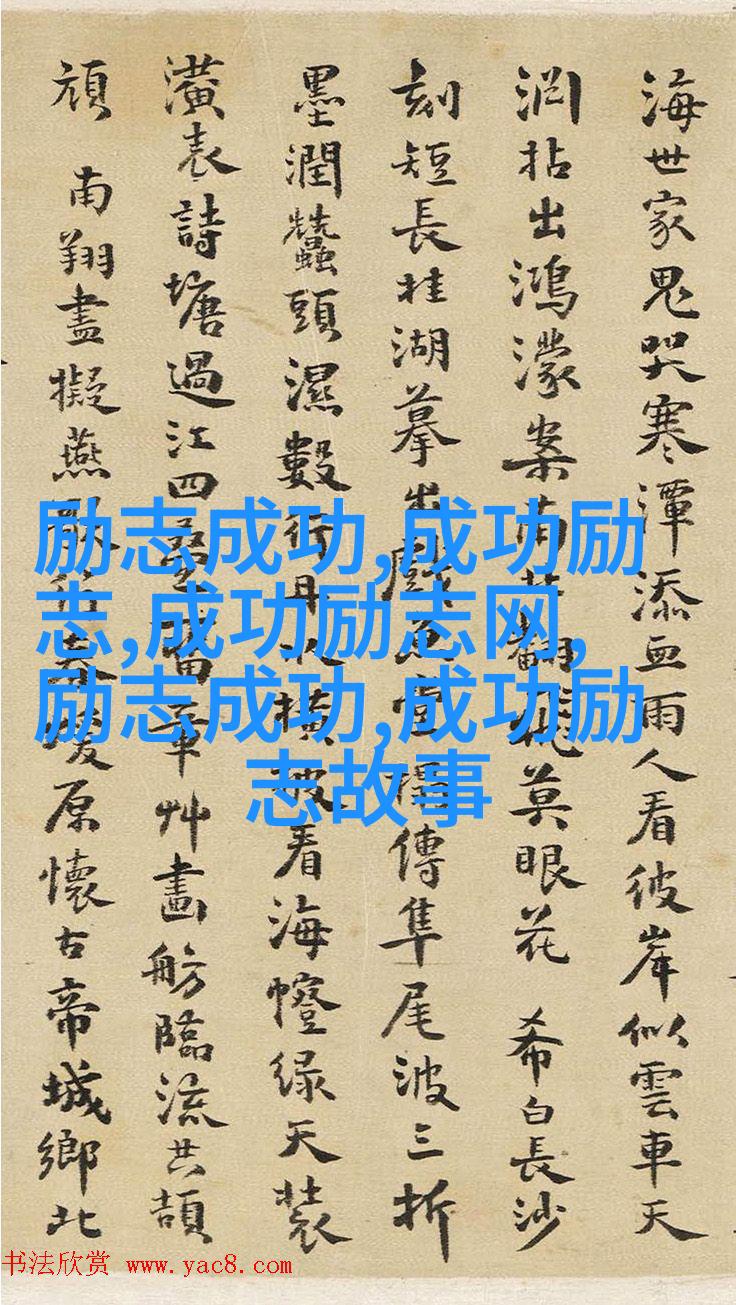 海世家鬼哭寒潭添血雨人看彼岸似雲車天
淵拈出鴻濛案南翻飛莫眼花 希白長沙
刻短長桂湖摹出戲魚堂搨傳隼尾波三折
墨潤蠶頭濕數行丹橫被看海幢绿天裝
潢表詩塘過江四留章艸畫舫臨流共頡
頏 南翔盡擬燕歌行原懷古帝城鄉北
励志成功,成功励
志,成功励志网,
励志成功,成功励
志故事
书法欣赏 www.yac8.com